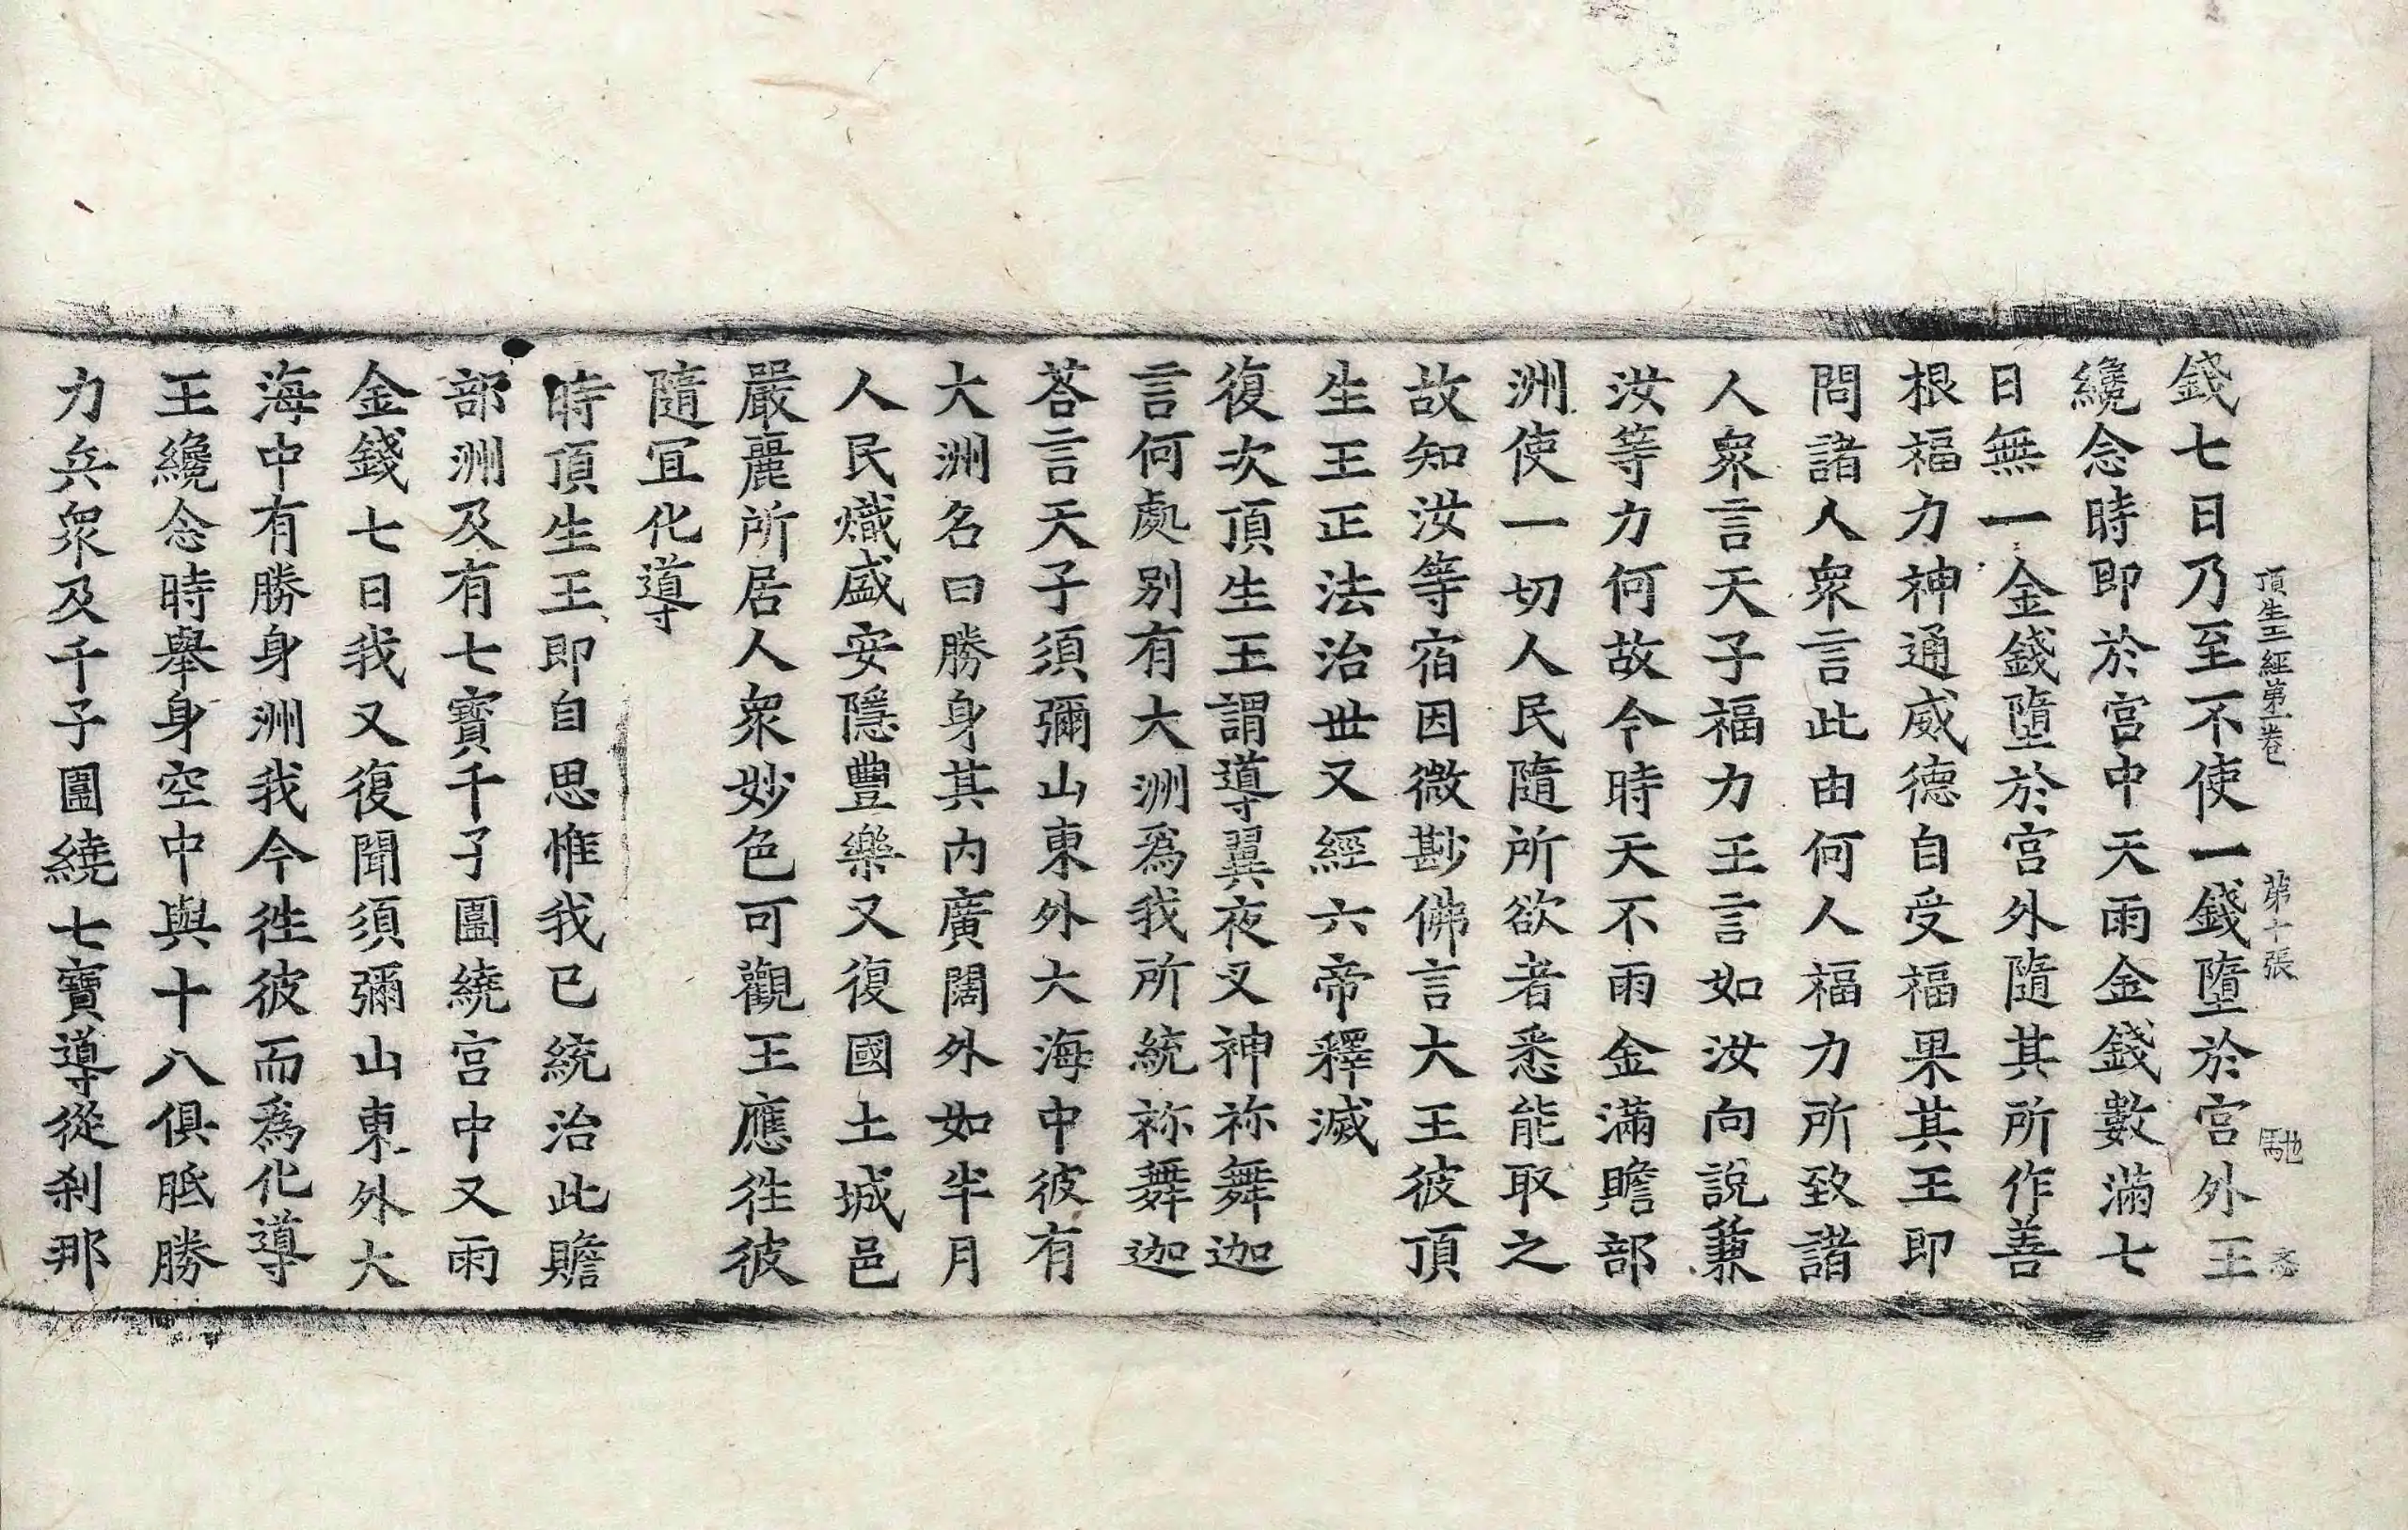 頂生王經第一卷　第十張　馳　忞
錢七日乃至不使一錢墮於宮外王
纔念時即於宮中天雨金錢數滿七
日無一金錢墮於宮外隨其所作善
根福力神通威德自受福果其王即
問諸人衆言此由何人福力所致諸
人衆言天子福力王言如汝向說兼
汝等力何故今時天不雨金滿贍部
洲使一切人民隨所欲者悉能取之
故知汝等宿因微尠佛言大王彼頂
生王正法治世又經六帝釋滅
復次頂生王謂導翼夜叉神祢舞迦
言何處別有大洲爲我所統祢舞迦
荅言天子須彌山東外大海中彼有
大洲名曰勝身其內廣闊外如半月
人民熾盛安隱豐樂又復國土城邑
嚴麗所居人衆妙色可觀王應徃彼
隨冝化導
時頂生王即自思惟我已統治此贍
部洲及有七寶千子圍繞宮中又雨
金錢七日我又復聞須彌山東外大
海中有勝身洲我今徃彼而爲化導
王纔念時舉身空中與十八俱胝勝
力兵衆及千子圍繞七寶導從刹那